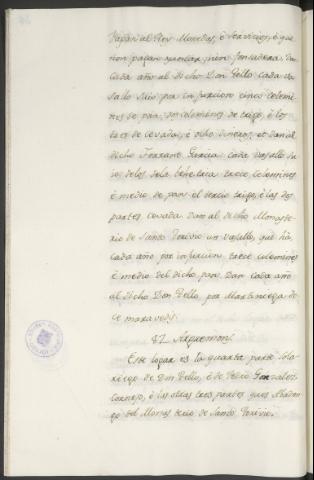 Pagan al Rey Monedas, é Servicios, é que
non pagan yantar, nin fonsadera, Dan
Cada año al Dicho Don Tello cada Va
sallo suio por infurcion cinco celemi-
nes de pan, dos celemines de trigo, é los
tres de cevada, é ocho dineros, et dan al
dicho Ferrant Garcia cada vasallo su
io delos dela behetria trece celemines
é medio de pan el tercio trigo, é las dos
partes cevada Dan al dicho Monaste-
rio de Santo Toribio un vasallo, que há,
cada año por infurcion trece celemines
é medio del dicho pan Dan cada año
al dicho Don Tello, por Martiniega do-
ce maravedis.
82 Argremon.
Este logar es la quarta parte Sola-
riego de Don Tello, é de Pedro Gonzalez
Cornejo, é las otras tres partes ques Abaden-
go del Monasterio de Santo Toribio.